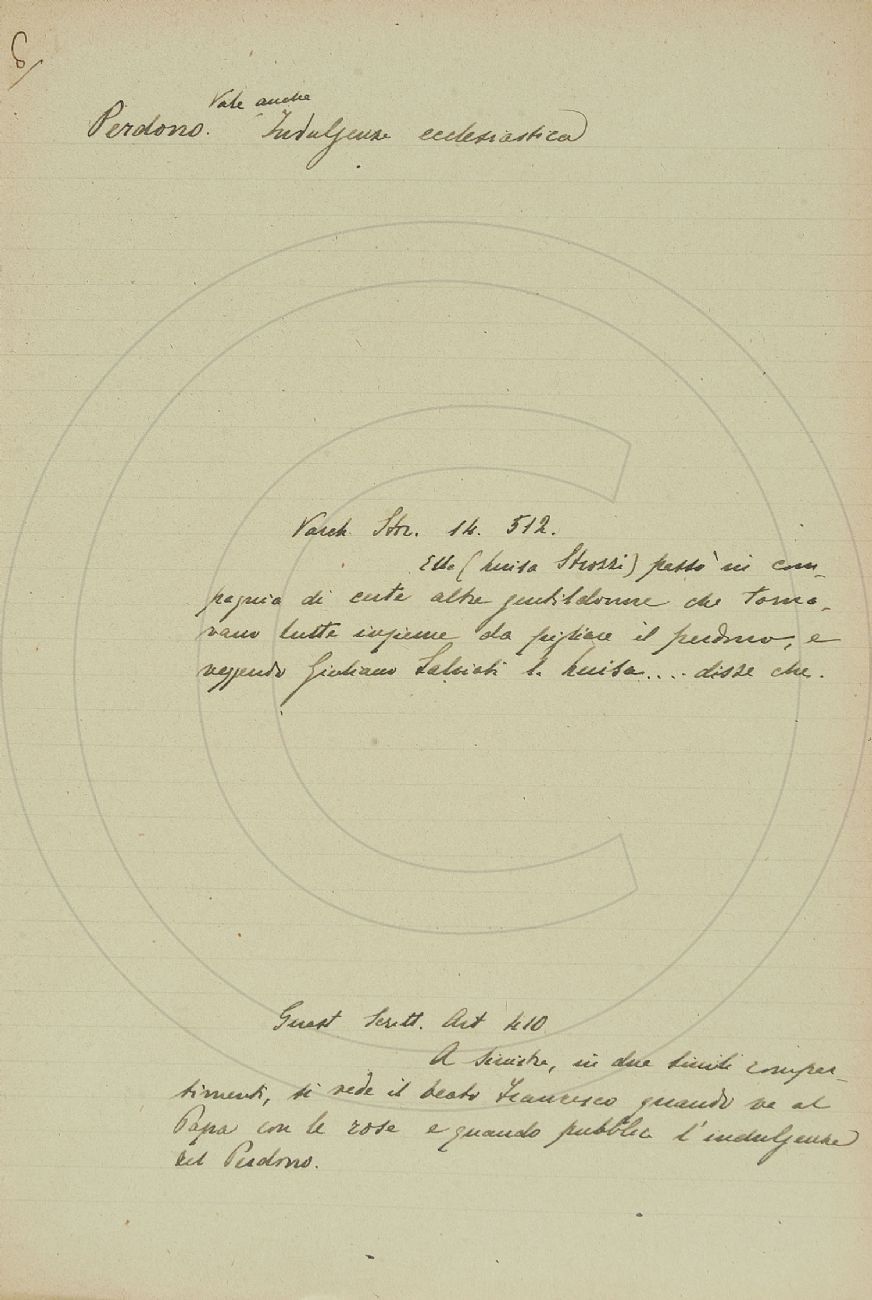 6/
Vale anche
Perdono. Indulgenza ecclesiastica
Varch. Stor. 14. 512.
Ella (Luisa Strozzi) passò in com-
pagnia di certe altre gentildonne che torna-
vano tutte insieme da pigliare il perdono, e
veggendo Giuliano Salviati la Luisa.... disse che.
Guast Scritt. Art 410
A sinistra, in due simili compar-
timenti, si vede il beato Francesco quando va al
Papa con le rose e quando pubblica l'indulgenza
del Perdono.